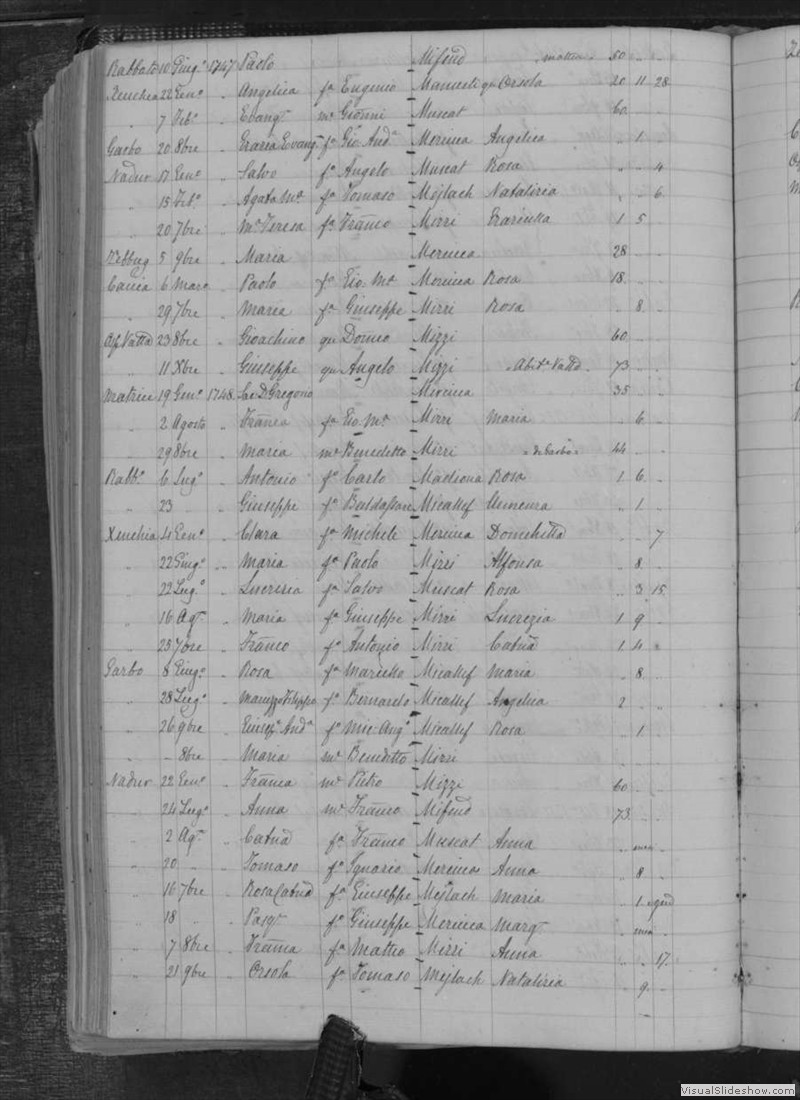 Rabbato 10 Giug.o 1747 Paolo Mifsud matteo 50 " "
Xeuchia 22 Gen.o " Angelica f.a Eugenio Manueli qu Orsola 20 11 28
" 7 Feb.o " Evang.ta m.e Gioñni Muscat 60 " "
Garbo 20 8bre " Grazia Evang.ta f.a Gio. And.a Mercieca Angelica " 1 "
Nadur 17 Gen.o " Salvo f.o Angelo Muscat Rosa " " 4
" 15 Feb.o " Agata M.a f.a Tomaso Mejlach Natalizia " " 6
" 20 7bre " M.a Teresa f.a Franco Mizzi Graziulla 1 5 "
Zebbug 5 9bre " Maria Mercieca 28 " "
Caccia 6 Marzo " Paolo f.o Gio. M.a Mercieca Rosa 18 " "
" 29 7bre " Maria f.a Giuseppe Mizzi Rosa " 8 "
Osp. Vatta 23 8bre " Gioachino qu Domeo Mizzi 60 " "
" 11 Xbre " Giuseppe qu Angelo Mizzi Abit.e Vatta 73 " "
Matrice 19 Gen.o 1748 Sac. D. Gregorio Mercieca 35 " "
" 2 Agosto " Franca f.a Gio. M.a Mizzi Maria " 6 "
" 29 8bre " Maria m.e Benedetto Mizzi di Garbo 44 " "
Rabb.o 6 Lug.o " Antonio f.o Carlo Madiona Rosa 1 6 "
" 23 " Giuseppe f.o Baldassare Micallef " 1 "
Xeuchia 4 Gen.o " Clara f.a Michele Mercieca Domenica " " 7
" 22 Giug.o " Maria f.a Paolo Mizzi Alfonsa " 8 "
" 22 Lug.o " Lucrezia f.a Salvo Muscat Rosa " 3 15
" 16 Ag.to " Maria f.a Giuseppe Mizzi Lucrezia 1 9 "
" 25 7bre " Franco f.o Antonio Mizzi Catna 1 4 "
Garbo 8 Giug.o " Rosa f.a Marietto Micallef Maria " 8 "
" 28 Lug.o " Filippo f.o Bernardo Micallef Angelica 2 " "
" 26 9bre " Gius.e And.a f.o Mic. Ang.o Micallef Rosa " 1 "
" - 8bre " Maria m.e Benedetto Mizzi
Nadur 22 Gen.o " Franca m.e Pietro Mizzi 60 " "
" 24 Lug.o " Anna m.e Franco Mifsud 73 " "
" 2 Ag.to " Catna f.a Franco Muscat Anna "
" 20 " Tomaso f.o Ignazio Mercieca Anna " 8 "
" 16 7bre " Rosa Catna f.a Giuseppe Mejlach Maria " 1
" 18 " " Pasq.e f.o Giuseppe Mercieca Marg.ta "
" 7 8bre " Franca f.a Matteo Mizzi Anna " " 17
" 21 9bre " Orsola f.a Tomaso Mejlach Natalizia " 9 "
VisualSlideshow.com